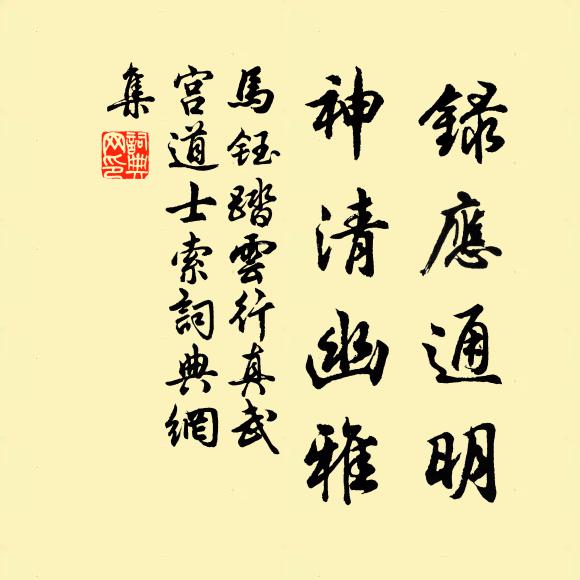 錄應通明
神清幽雅
馬鈺踏雲行真武
宮道士索詞典網
集
詞典
网印